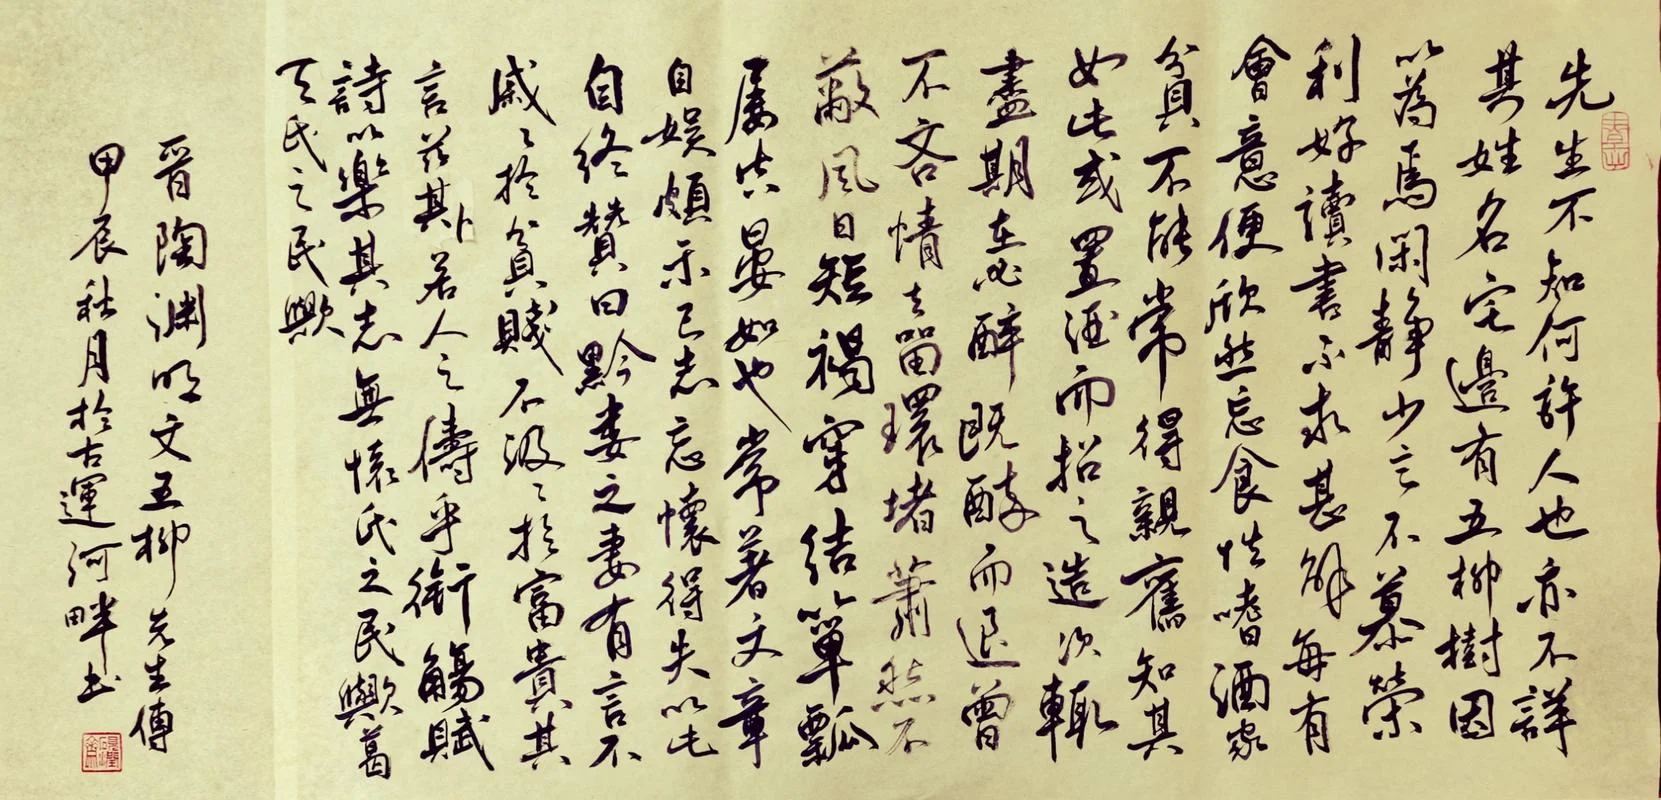 先生不知何許人也亦不詳
其姓名宅邊有五柳樹因
以為焉閑靜少言不慕榮
利好讀書不求甚解每有
會意便欣然忘食性嗜酒家
貧不能常得親舊知其
如此或置酒而招之造次輒
盡期在必醉既醉而退曾
不吝情去留環堵蕭然不
蔽風日短褐穿結簞瓢
屢空晏如也常著文章
自娛頗示己志忘懷得失以此
自終贊曰黔婁之妻有言不
戚〻於貧賤不汲〻於富貴其
言茲其若人之儔乎銜觴賦
詩以樂其志無懷氏之民歟葛
天氏之民歟
晉陶淵明文五柳先生傳
甲辰秋月於古運河畔書